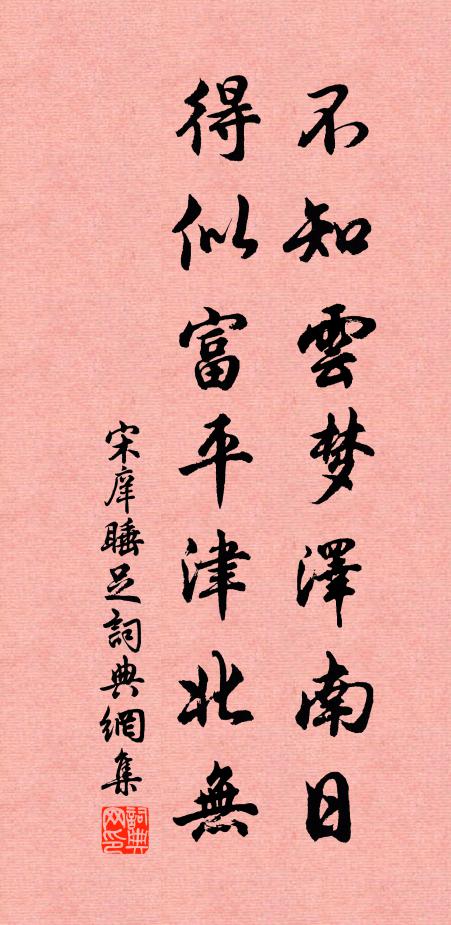 不知雲梦澤南日
得似富平津北無
宋庠睡足詞典網集
詞典网印